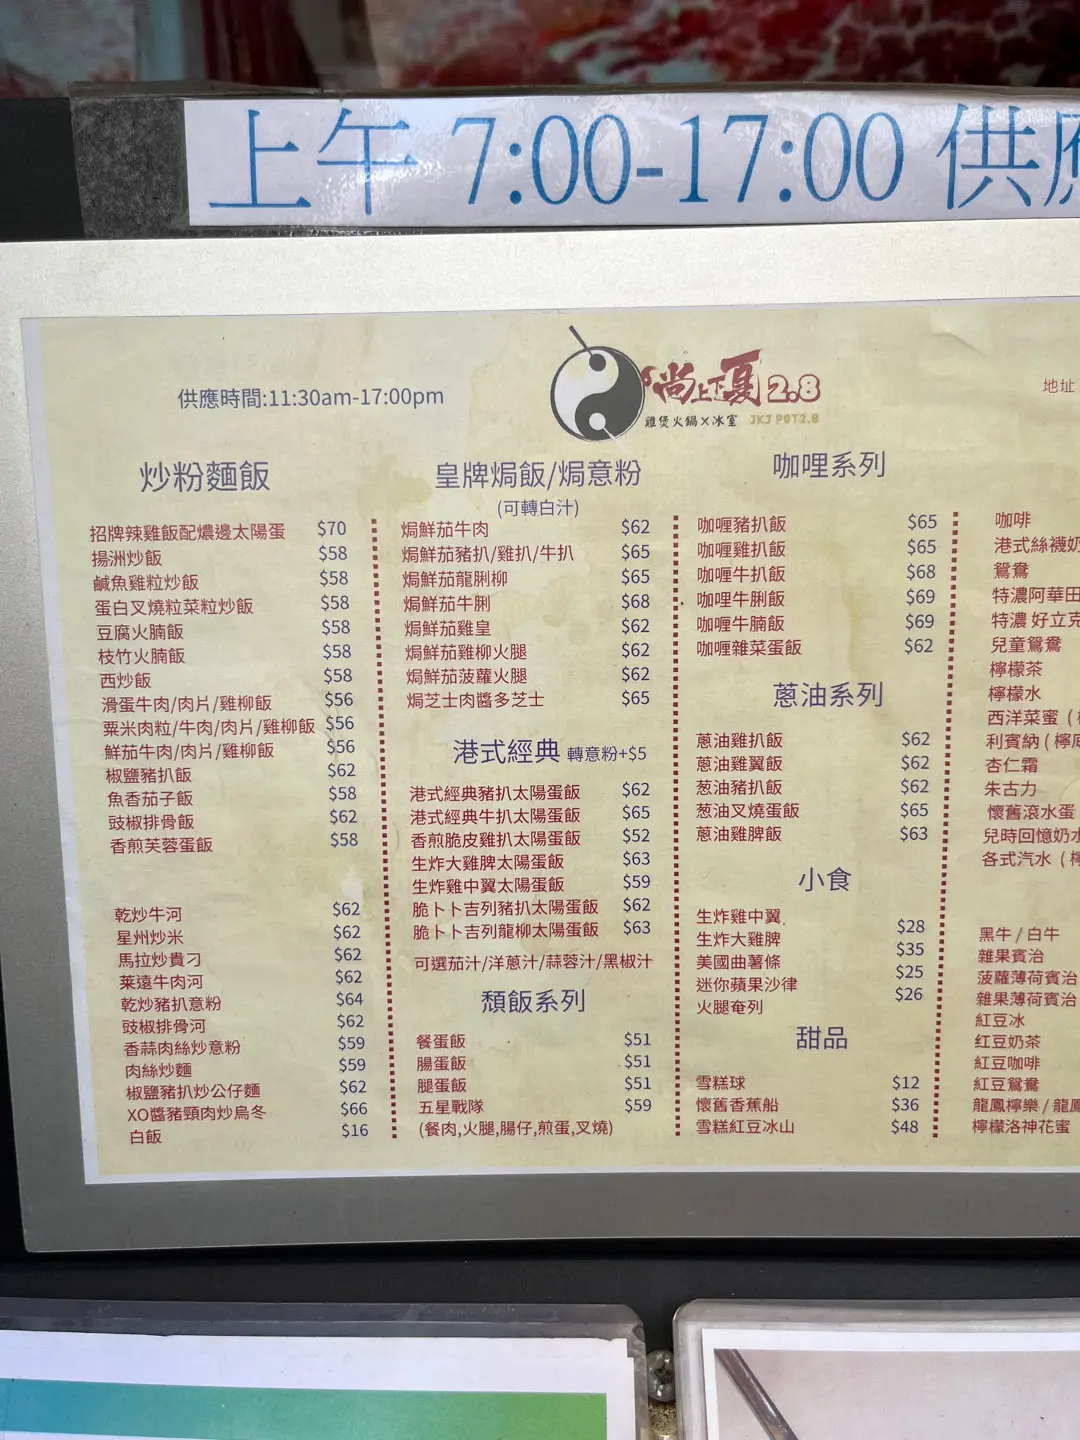 上午 7:00-17:00 供應
供應時間:11:30am-17:00pm
尚上下夏 2.8
雞煲火鍋×冰室 JKJ POT2.8
地址
炒粉麵飯
招牌辣雞飯配濃邊太陽蛋 $70
揚洲炒飯 $58
鹹魚雞粒炒飯 $58
蛋白叉燒粒菜粒炒飯 $58
豆腐火腩飯 $58
枝竹火腩飯 $58
西炒飯 $58
滑蛋牛肉/肉片/雞柳飯 $56
粟米肉粒/牛肉/肉片/雞柳飯 $56
鮮茄牛肉/肉片/雞柳飯 $56
椒鹽豬扒飯 $62
魚香茄子飯 $58
豉椒排骨飯 $62
香煎芙蓉蛋飯 $58
乾炒牛河 $62
星州炒米 $62
馬拉炒貴刁 $62
莱遠牛肉河 $62
乾炒豬扒意粉 $64
豉椒排骨河 $62
香蒜肉絲炒意粉 $59
肉絲炒麵 $59
椒鹽豬扒炒公仔麵 $62
XO醬豬頸肉炒烏冬 $66
白飯 $16
皇牌焗飯/焗意粉
(可轉白汁)
焗鮮茄牛肉 $62
焗鮮茄豬扒/雞扒/牛扒 $65
焗鮮茄龍脷柳 $65
焗鮮茄牛脷 $68
焗鮮茄雞皇 $62
焗鮮茄雞柳火腿 $62
焗鮮茄菠蘿火腿 $62
焗芝士肉醬多芝士 $65
港式經典 轉意粉+$5
港式經典豬扒太陽蛋飯 $62
港式經典牛扒太陽蛋飯 $65
香煎脆皮雞扒太陽蛋飯 $52
生炸大雞脾太陽蛋飯 $63
生炸雞中翼太陽蛋飯 $59
脆卜卜吉列豬扒太陽蛋飯 $62
脆卜卜吉列龍柳太陽蛋飯 $63
可選茄汁/洋蔥汁/蒜蓉汁/黑椒汁
頹飯系列
餐蛋飯 $51
腸蛋飯 $51
腿蛋飯 $51
五星戰隊 $59
(餐肉,火腿,腸仔,煎蛋,叉燒)
咖哩系列
咖喱豬扒飯 $65
咖喱雞扒飯 $65
咖喱牛扒飯 $68
咖哩牛脷飯 $69
咖喱牛腩飯 $69
咖喱雜菜蛋飯 $62
蔥油系列
蔥油雞扒飯 $62
蔥油雞翼飯 $62
葱油豬扒飯 $62
葱油叉燒蛋飯 $65
蔥油雞脾飯 $63
小食
生炸雞中翼 $28
生炸大雞脾 $35
美國曲薯條 $25
迷你蘋果沙律 $26
火腿奄列
甜品
雪糕球 $12
懷舊香蕉船 $36
雪糕紅豆冰山 $48
咖啡
港式絲襪奶
鴛鴦
特濃阿華田
特濃 好立克
兒童鴛鴦
檸檬茶
檸檬水
西洋菜蜜 (
利賓納 ( 檸
杏仁霜
朱古力
懷舊滾水蛋
兒時回憶奶水
各式汽水 (
黑牛 / 白牛
雜果賓治
菠蘿薄荷賓治
雜果薄荷賓治
紅豆冰
红豆奶茶
紅豆咖啡
紅豆鴛鴦
龍鳳檸樂 / 龍鳳
檸檬洛神花蜜